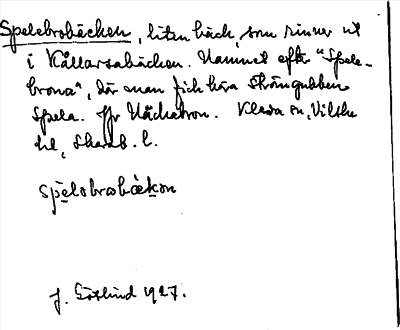 Spelebrobäcken, liten bäck, som rinner ut
i Kållarsabäcken. Namnet efter "Spele-
brona", där man fick höra Strömgubben
spela. Jfr Näckabron. Kleva sn, Vilske
hd, Skarab. l.
spelobrobäkɔn
J. Götlind 1927.